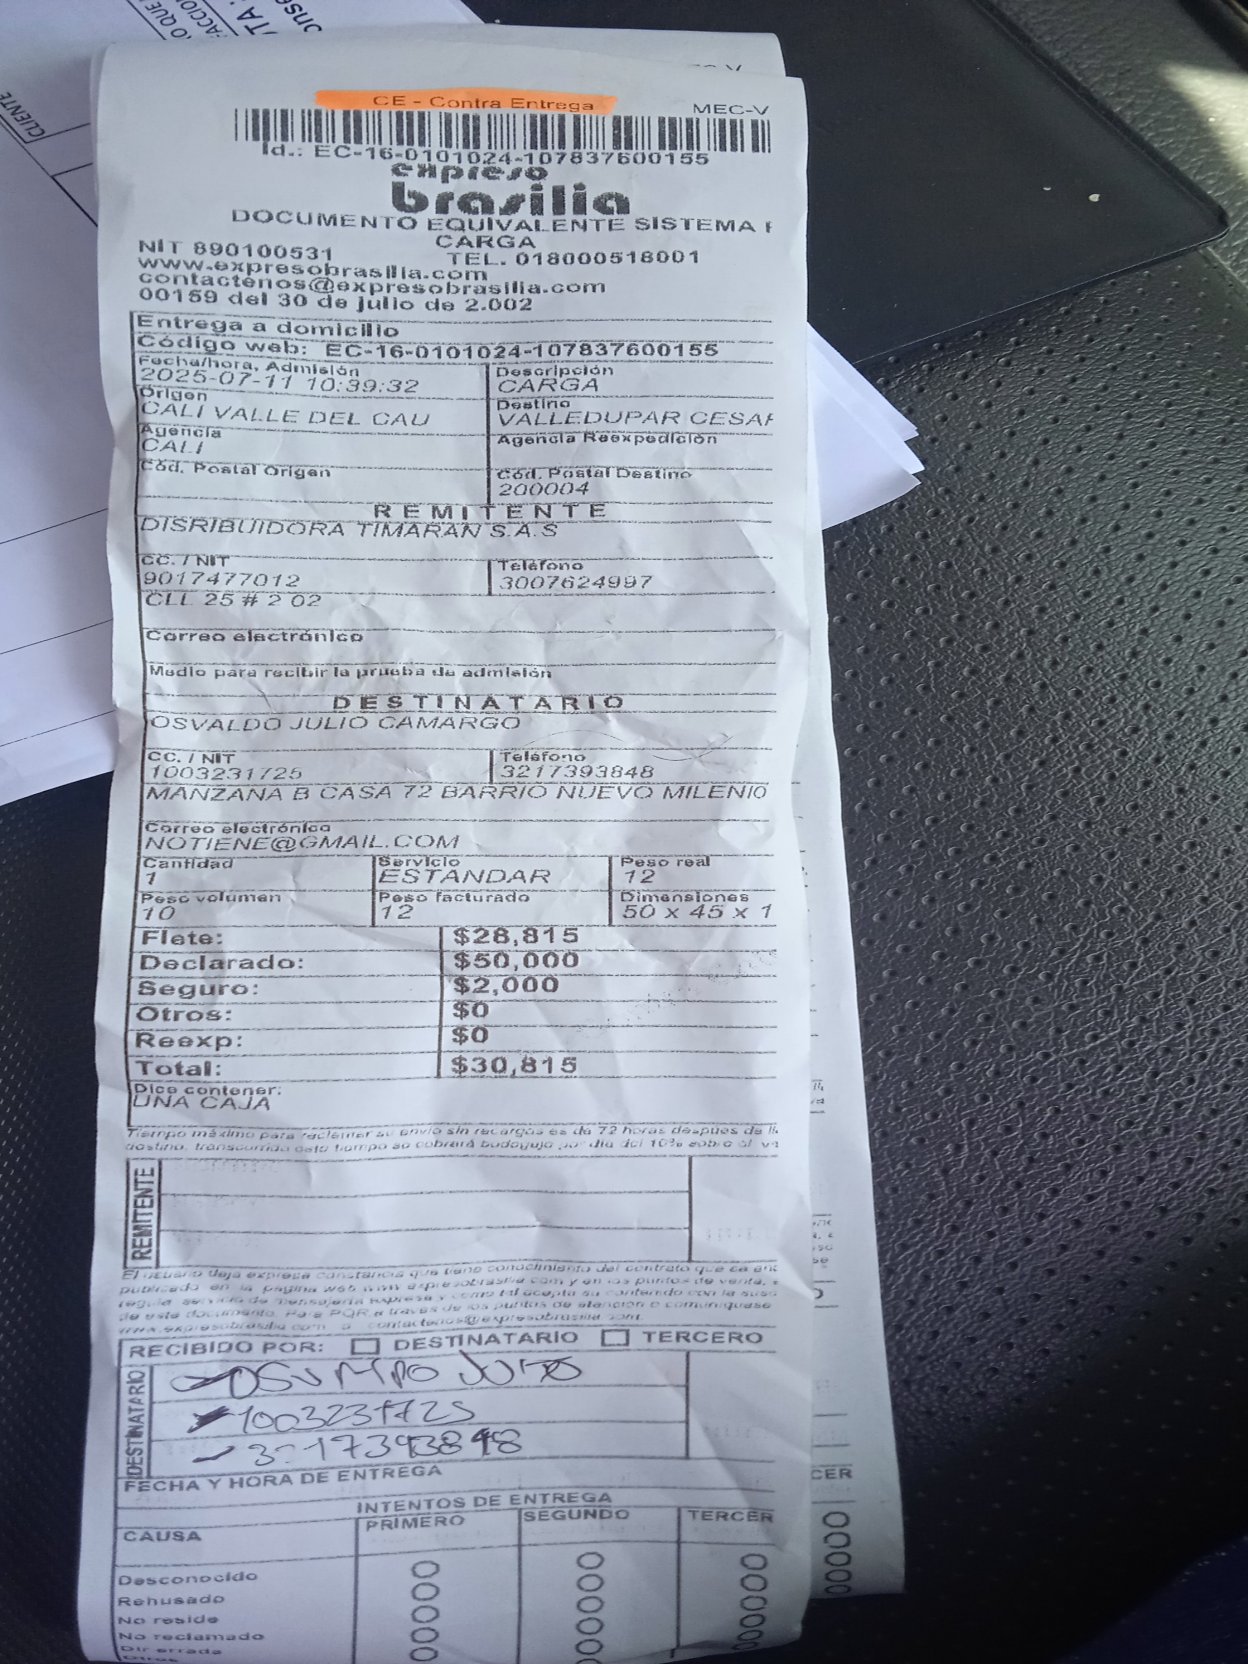 CLIENTE
CE - Contra Entrega
MEC-V
Id.: EC-16-0101024-107837600155
expreso
brasilia
DOCUMENTO EQUIVALENTE SISTEMA
CARGA
NIT 890100531 TEL. 018000518001
www.expresobrasilia.com
contactenos@expresobrasilia.com
00159 del 30 de julio de 2.002
Entrega a domicilio
Código web: EC-16-0101024-107837600155
Fecha/hora, Admisión Descripción
2025-07-11 10:39:32 CARGA
Origen Destino
CALI VALLE DEL CAU VALLEDUPAR CESAR
Agencia Agencia Reexpedición
CALI
Cód. Postal Origen Cód. Postal Destino
200004
REMITENTE
DISRIBUIDORA TIMARAN S.A.S
CC. / NIT Teléfono
9017477012 3007624997
CLL 25 # 2 02
Correo electrónico
Medio para recibir la prueba de admisión
DESTINATARIO
OSVALDO JULIO CAMARGO
CC. / NIT Teléfono
1003231725 3217393848
MANZANA B CASA 72 BARRIO NUEVO MILENIO
Correo electrónico
NOTIENE@GMAIL.COM
Cantidad Servicio Peso real
1 ESTANDAR 12
Peso volumen Peso facturado Dimensiones
10 12 50 x 45 x 1
Flete: $28,815
Declarado: $50,000
Seguro: $2,000
Otros: $0
Reexp: $0
Total: $30,815
Dice contener:
UNA CAJA
Tiempo máximo para reclamar su envío sin recargos es de 72 horas después de
destino, transcurrido este tiempo se cobrará bodegaje por día del 10% sobre el
REMITENTE
El usuario deja expresa constancia que tiene conocimiento del contrato que se
publicado en la página web www.expresobrasilia.com y en los puntos de venta,
regula servicio de mensajería expresa y como tal acepta su contenido con la
de este documento. Para PQR a través de los puntos de atención o comuníquese
www.expresobrasilia.com o contactenos@expresobrasilia.com.
RECIBIDO POR: DESTINATARIO TERCERO
DESTINATARIO
1003231725
3217393848
FECHA Y HORA DE ENTREGA
INTENTOS DE ENTREGA
CAUSA PRIMERO SEGUNDO TERCER
Desconocido
Rehusado
No reside
No reclamado
Dir errada
Otros